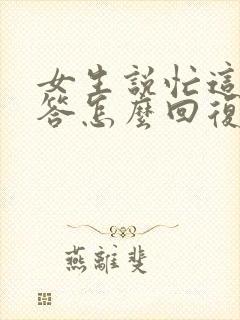 女生說忙這
答怎麼回復
燕離斐